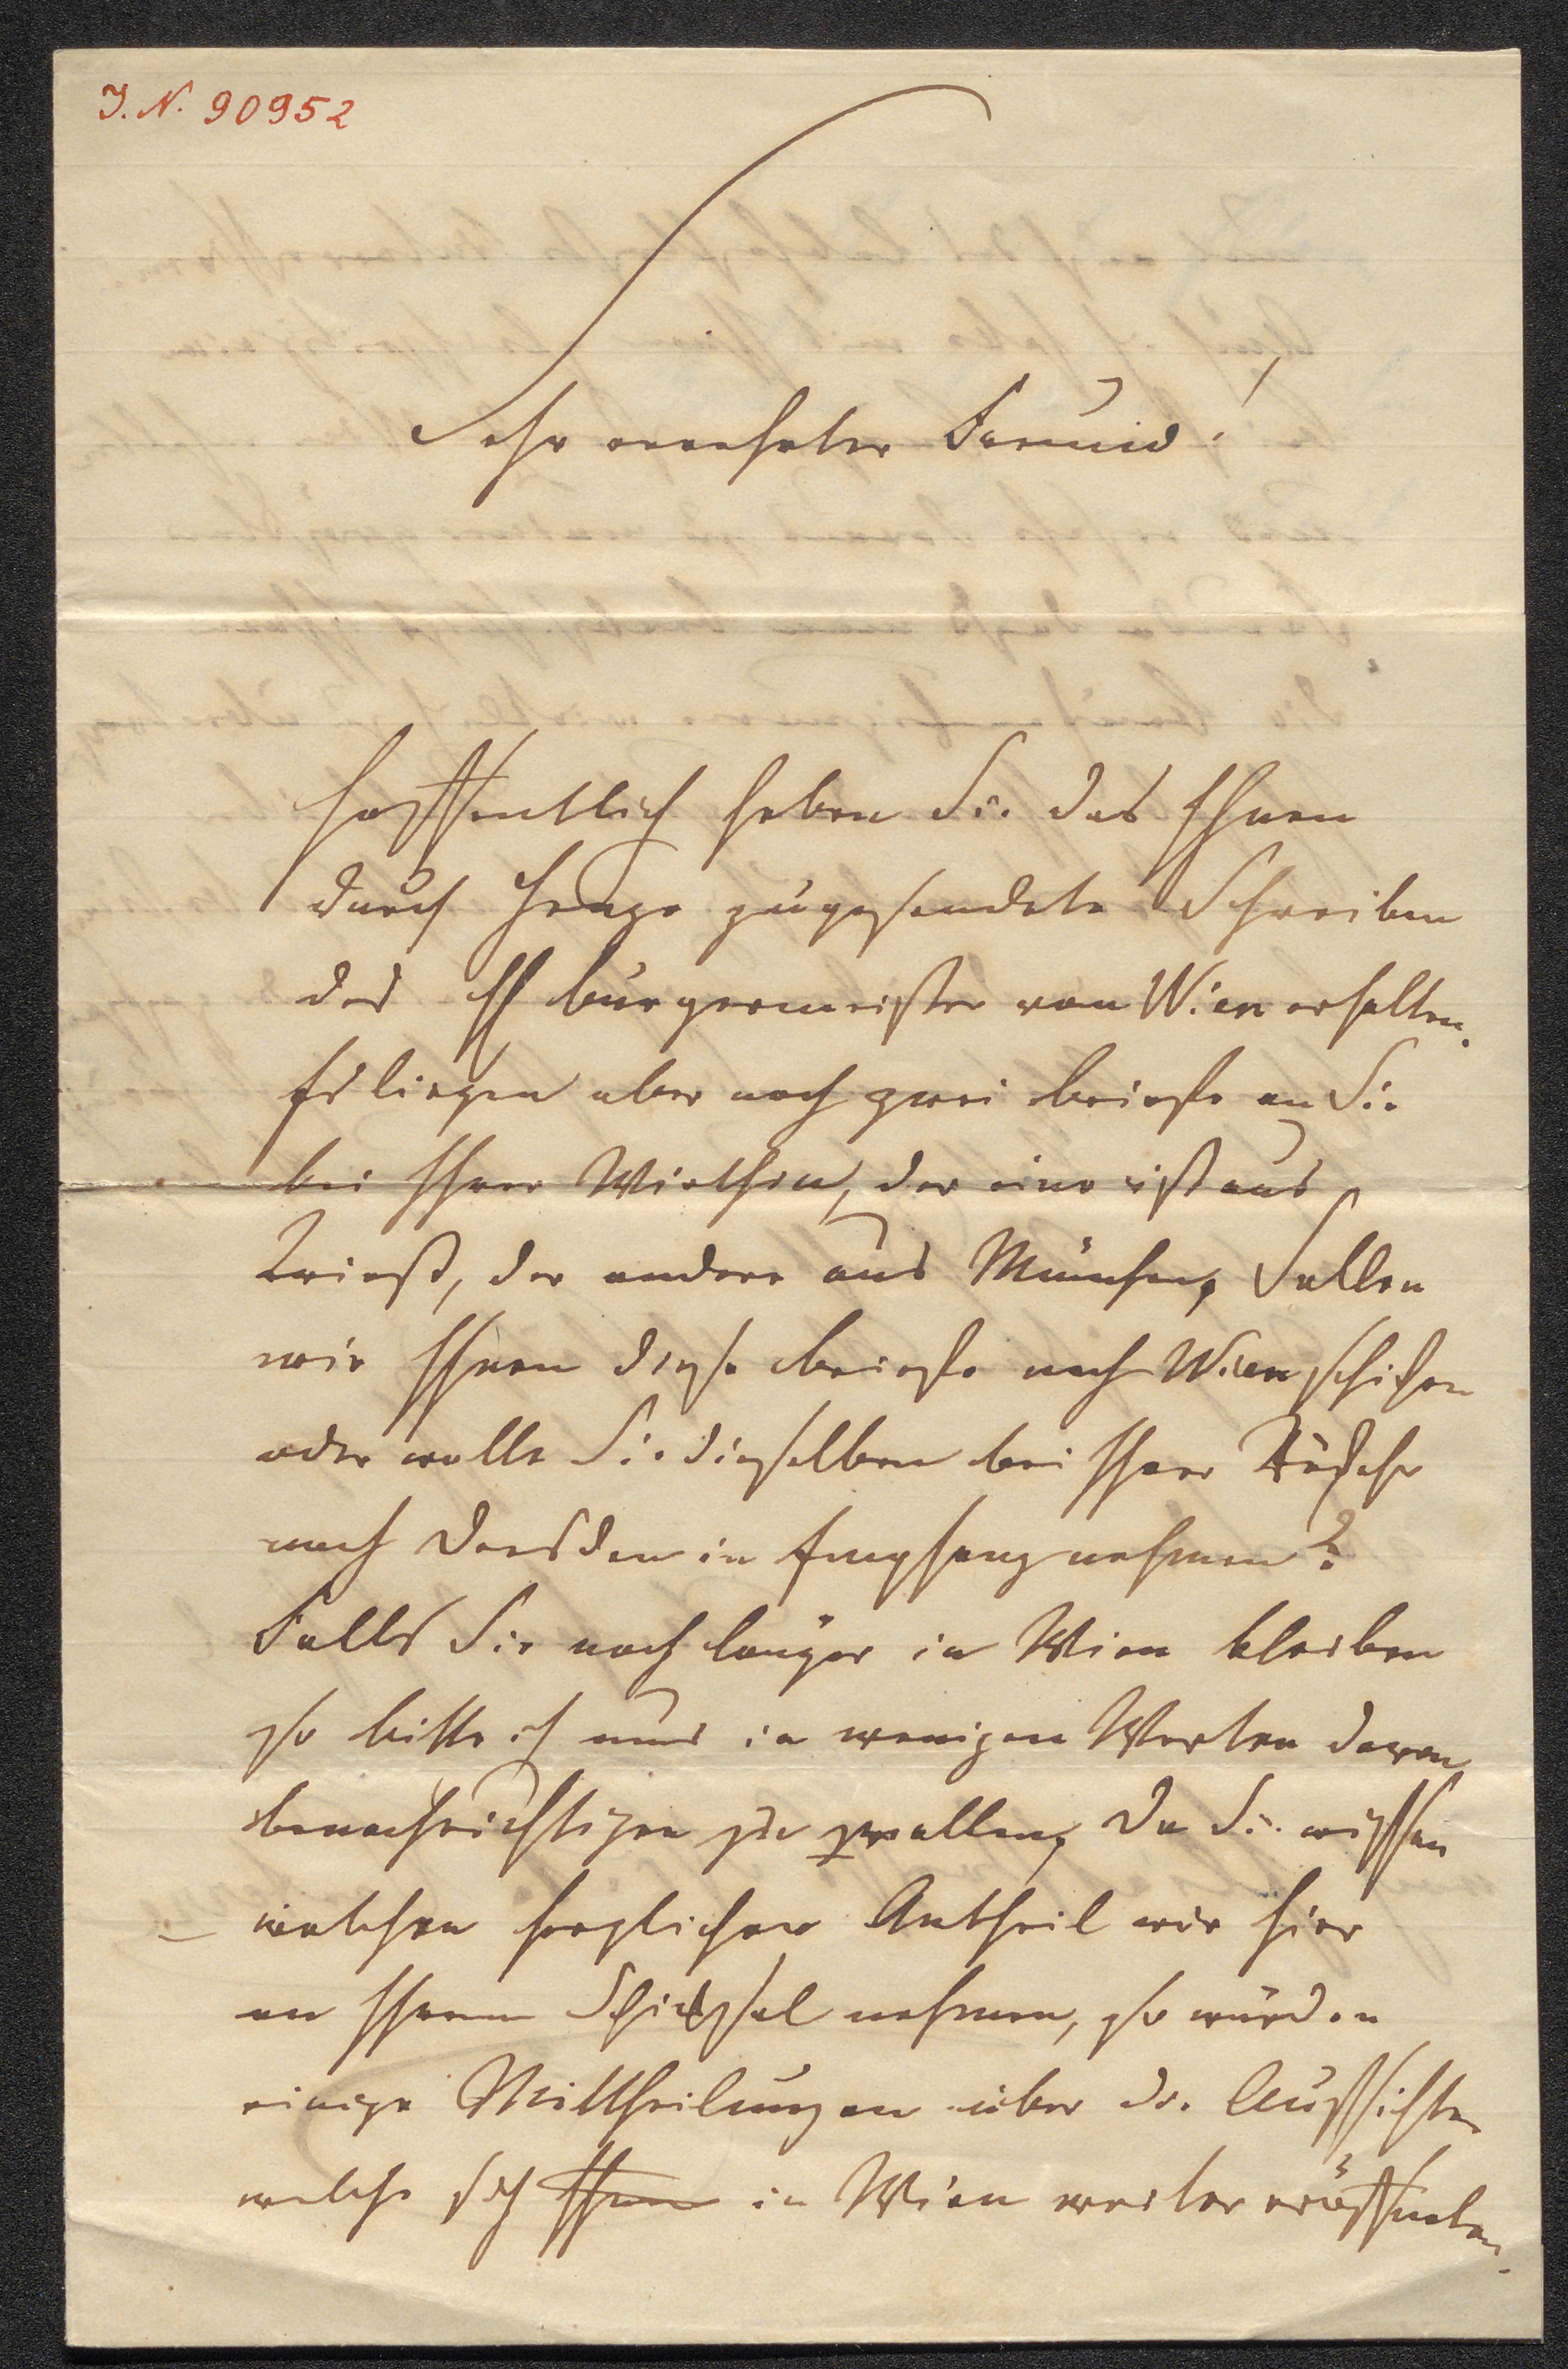 I. N. 90952
Sehr verehrter Freund!
Hoffentlich haben Sie das Ihnen
durch Henze zugesendete Schreiben
des H Bürgermeister von Wien erhalten.
Es liegen aber noch zwei Briefe an Sie
bei Ihrer Wirthin, der eine ist aus
Triest, der andere aus München, Sollen
wir Ihnen diese Briefe nach Wien schicken
oder wolle Sie dieselben bei Ihrer
nach Dresden in Empfang nehmen?
Falls Sie noch länger in Wien bleiben
so bitte ich uns in wenigen Worten davon
benachrichtigen zu wollen, da Sie wissen
welchen herzlichen Antheil wir hier
an Ihrem Schicksal nehmen, so würden
einige Mittheilungen über die Aussichten
welche sich Ihnen in Wien weiter eröffneten